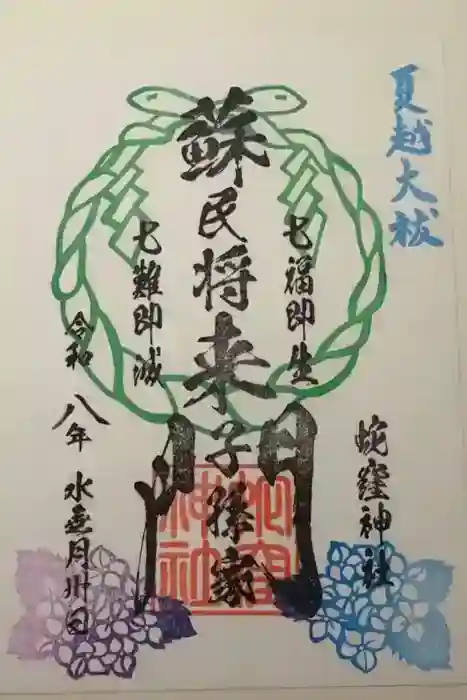 夏越大祓
蛇窪神社
七福即生
蘇民将来子孫家門
七難即滅
令和八年水無月卅日
蛇窪神社